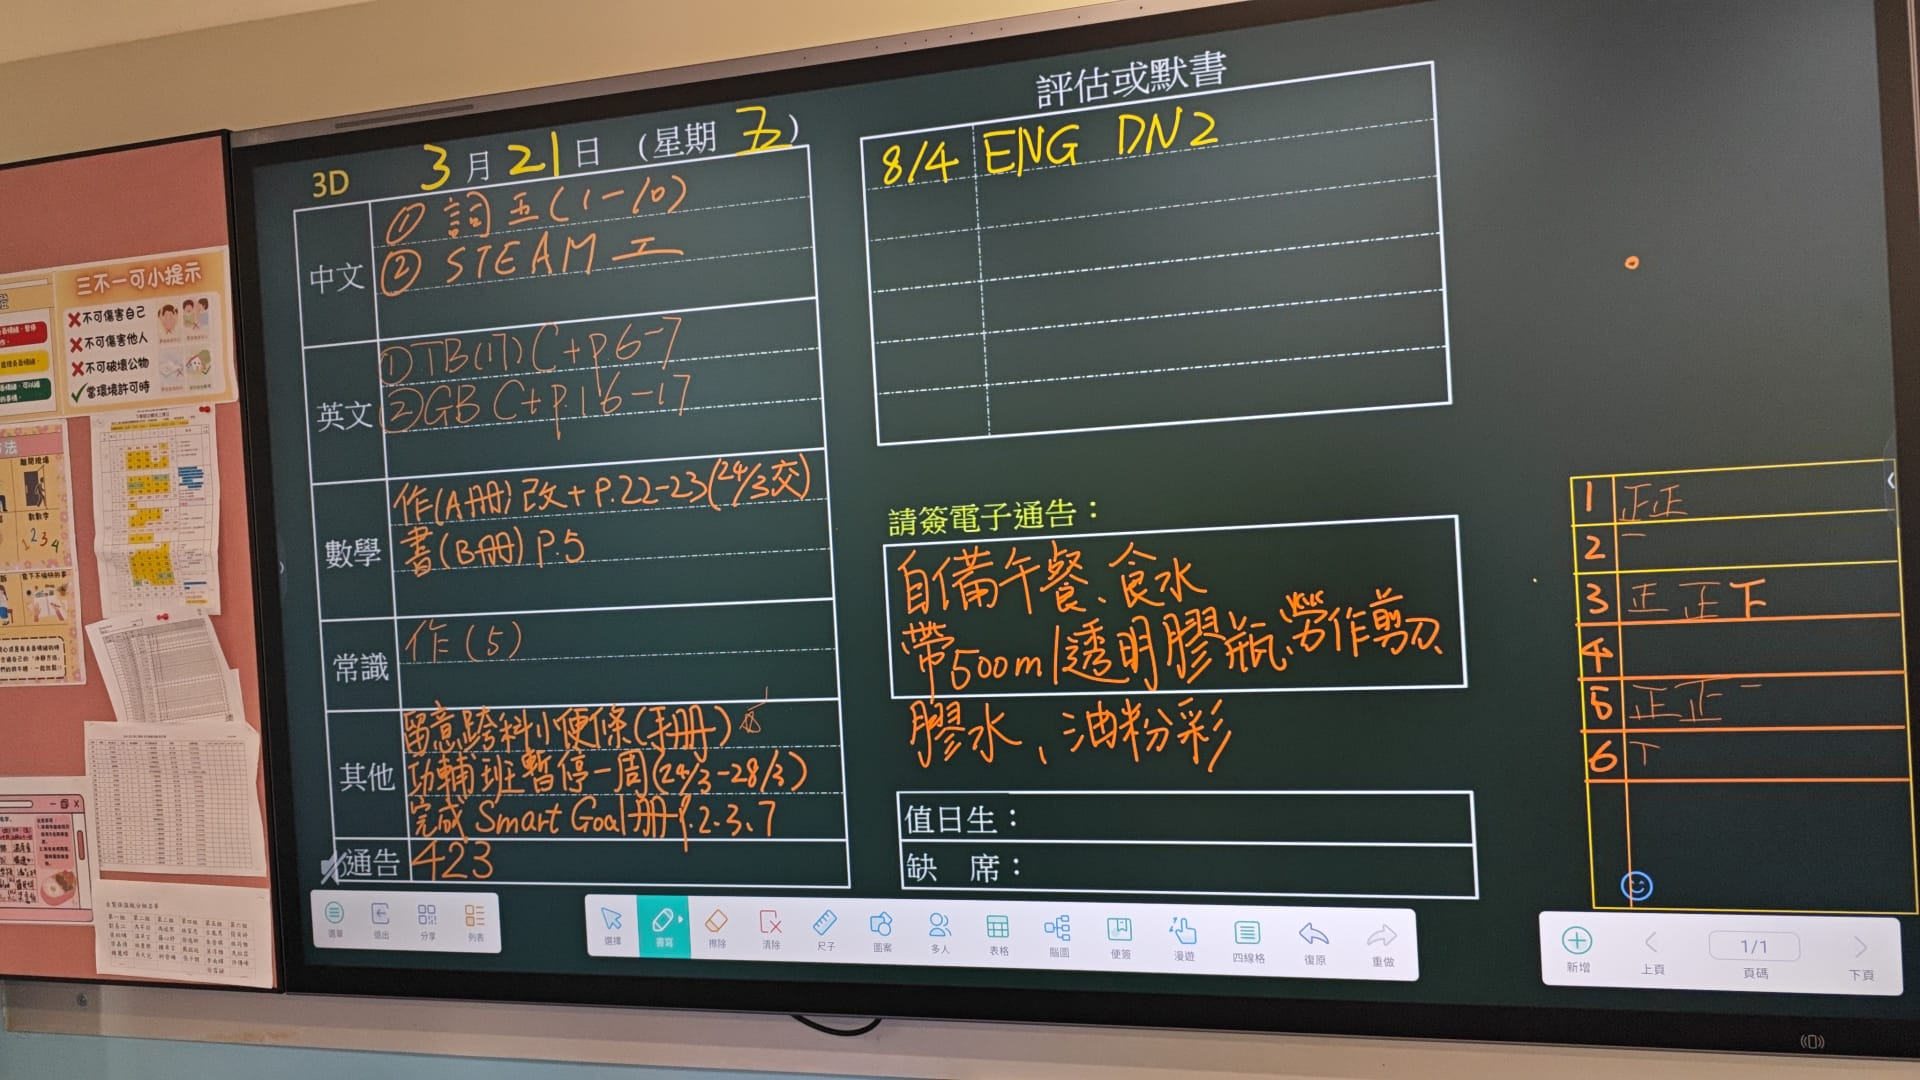 3D 3月21日 (星期五)
中文
① 詞五(1-10)
② STEAM 工
英文
① TB(17) C + p.6-7
② GB C + p.16-17
數學
作(A冊)改 + P.22-23(24/3交)
書(B冊) P.5
常識
作(5)
其他
留意跨科小便條(手冊)
功輔班暫停一周(24/3-28/3)
完成 Smart Goal冊 P.2、3、7
通告
423
評估或默書
8/4 ENG DN2
請簽電子通告：
自備午餐、食水
帶500ml透明膠瓶、勞作剪刀、
膠水、油粉彩
值日生：
缺 席：
1 正正
2 一
3 正正下
4
5 正正一
6 丅
選單 退出 分享 列表
選擇 書寫 擦除 清除 尺子 圖案 多人 表格 腦圖 便簽 漫遊 四線格 復原 重做
新增 上頁 1/1 頁碼 下頁
三不一可小提示
不可傷害自己
不可傷害他人
不可破壞公物
當環境許可時